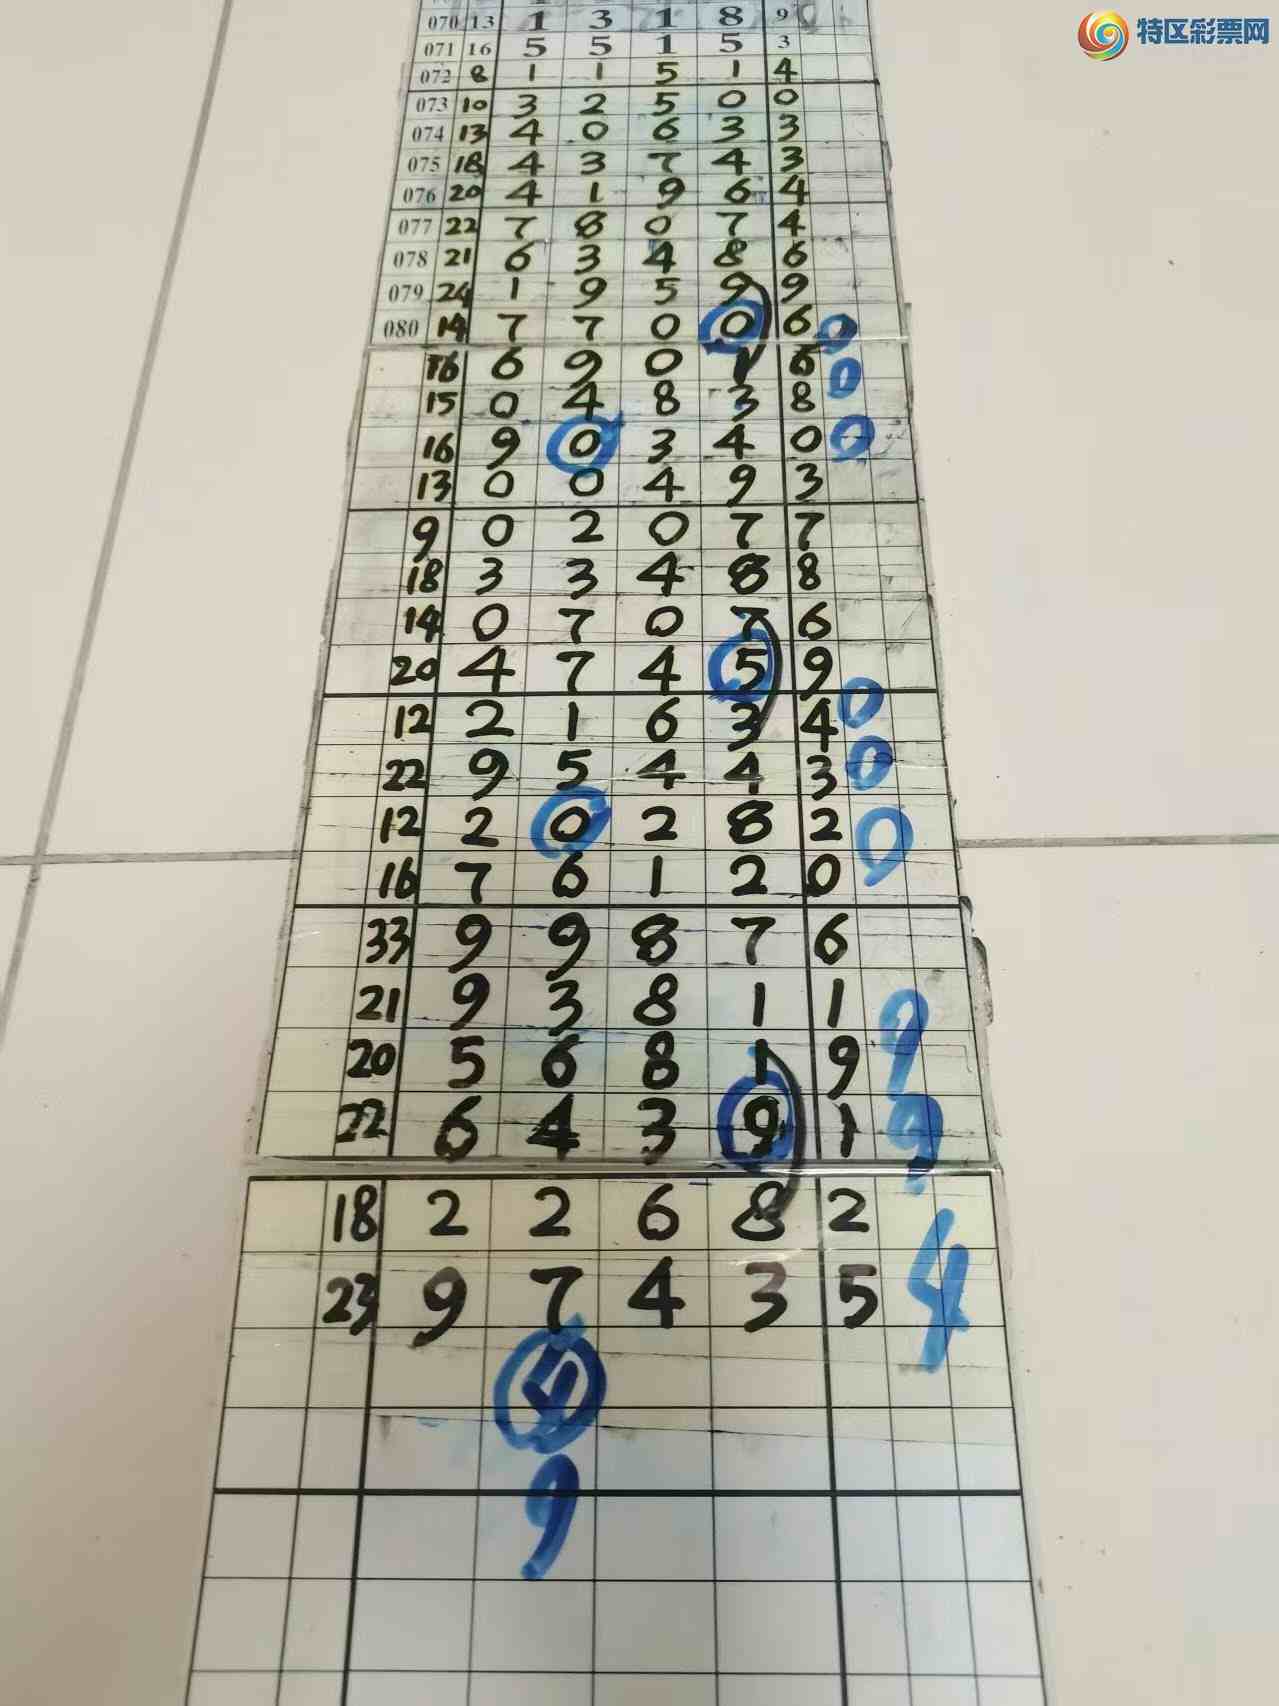 特区彩票网
070 13 1 3 1 8 9
071 16 5 5 1 5 3
072 8 1 1 5 1 4
073 10 3 2 5 0 0
074 13 4 0 6 3 3
075 18 4 3 7 4 3
076 20 4 1 9 6 4
077 22 7 8 0 7 4
078 21 6 3 4 8 6
079 24 1 9 5 9 9
080 14 7 7 0 0 6 0
16 6 9 0 1 6 0
15 0 4 8 3 8
16 9 0 3 4 0 0
13 0 0 4 9 3
9 0 2 0 7 7
18 3 3 4 8 8
14 0 7 0 7 6
20 4 7 4 5 9
12 2 1 6 3 4 0
22 9 5 4 4 3 0
12 2 0 2 8 2 0
16 7 6 1 2 0
33 9 9 8 7 6
21 9 3 8 1 1 9
20 5 6 8 1 9
22 6 4 3 9 1 9
18 2 2 6 8 2
23 9 7 4 3 5 4
9